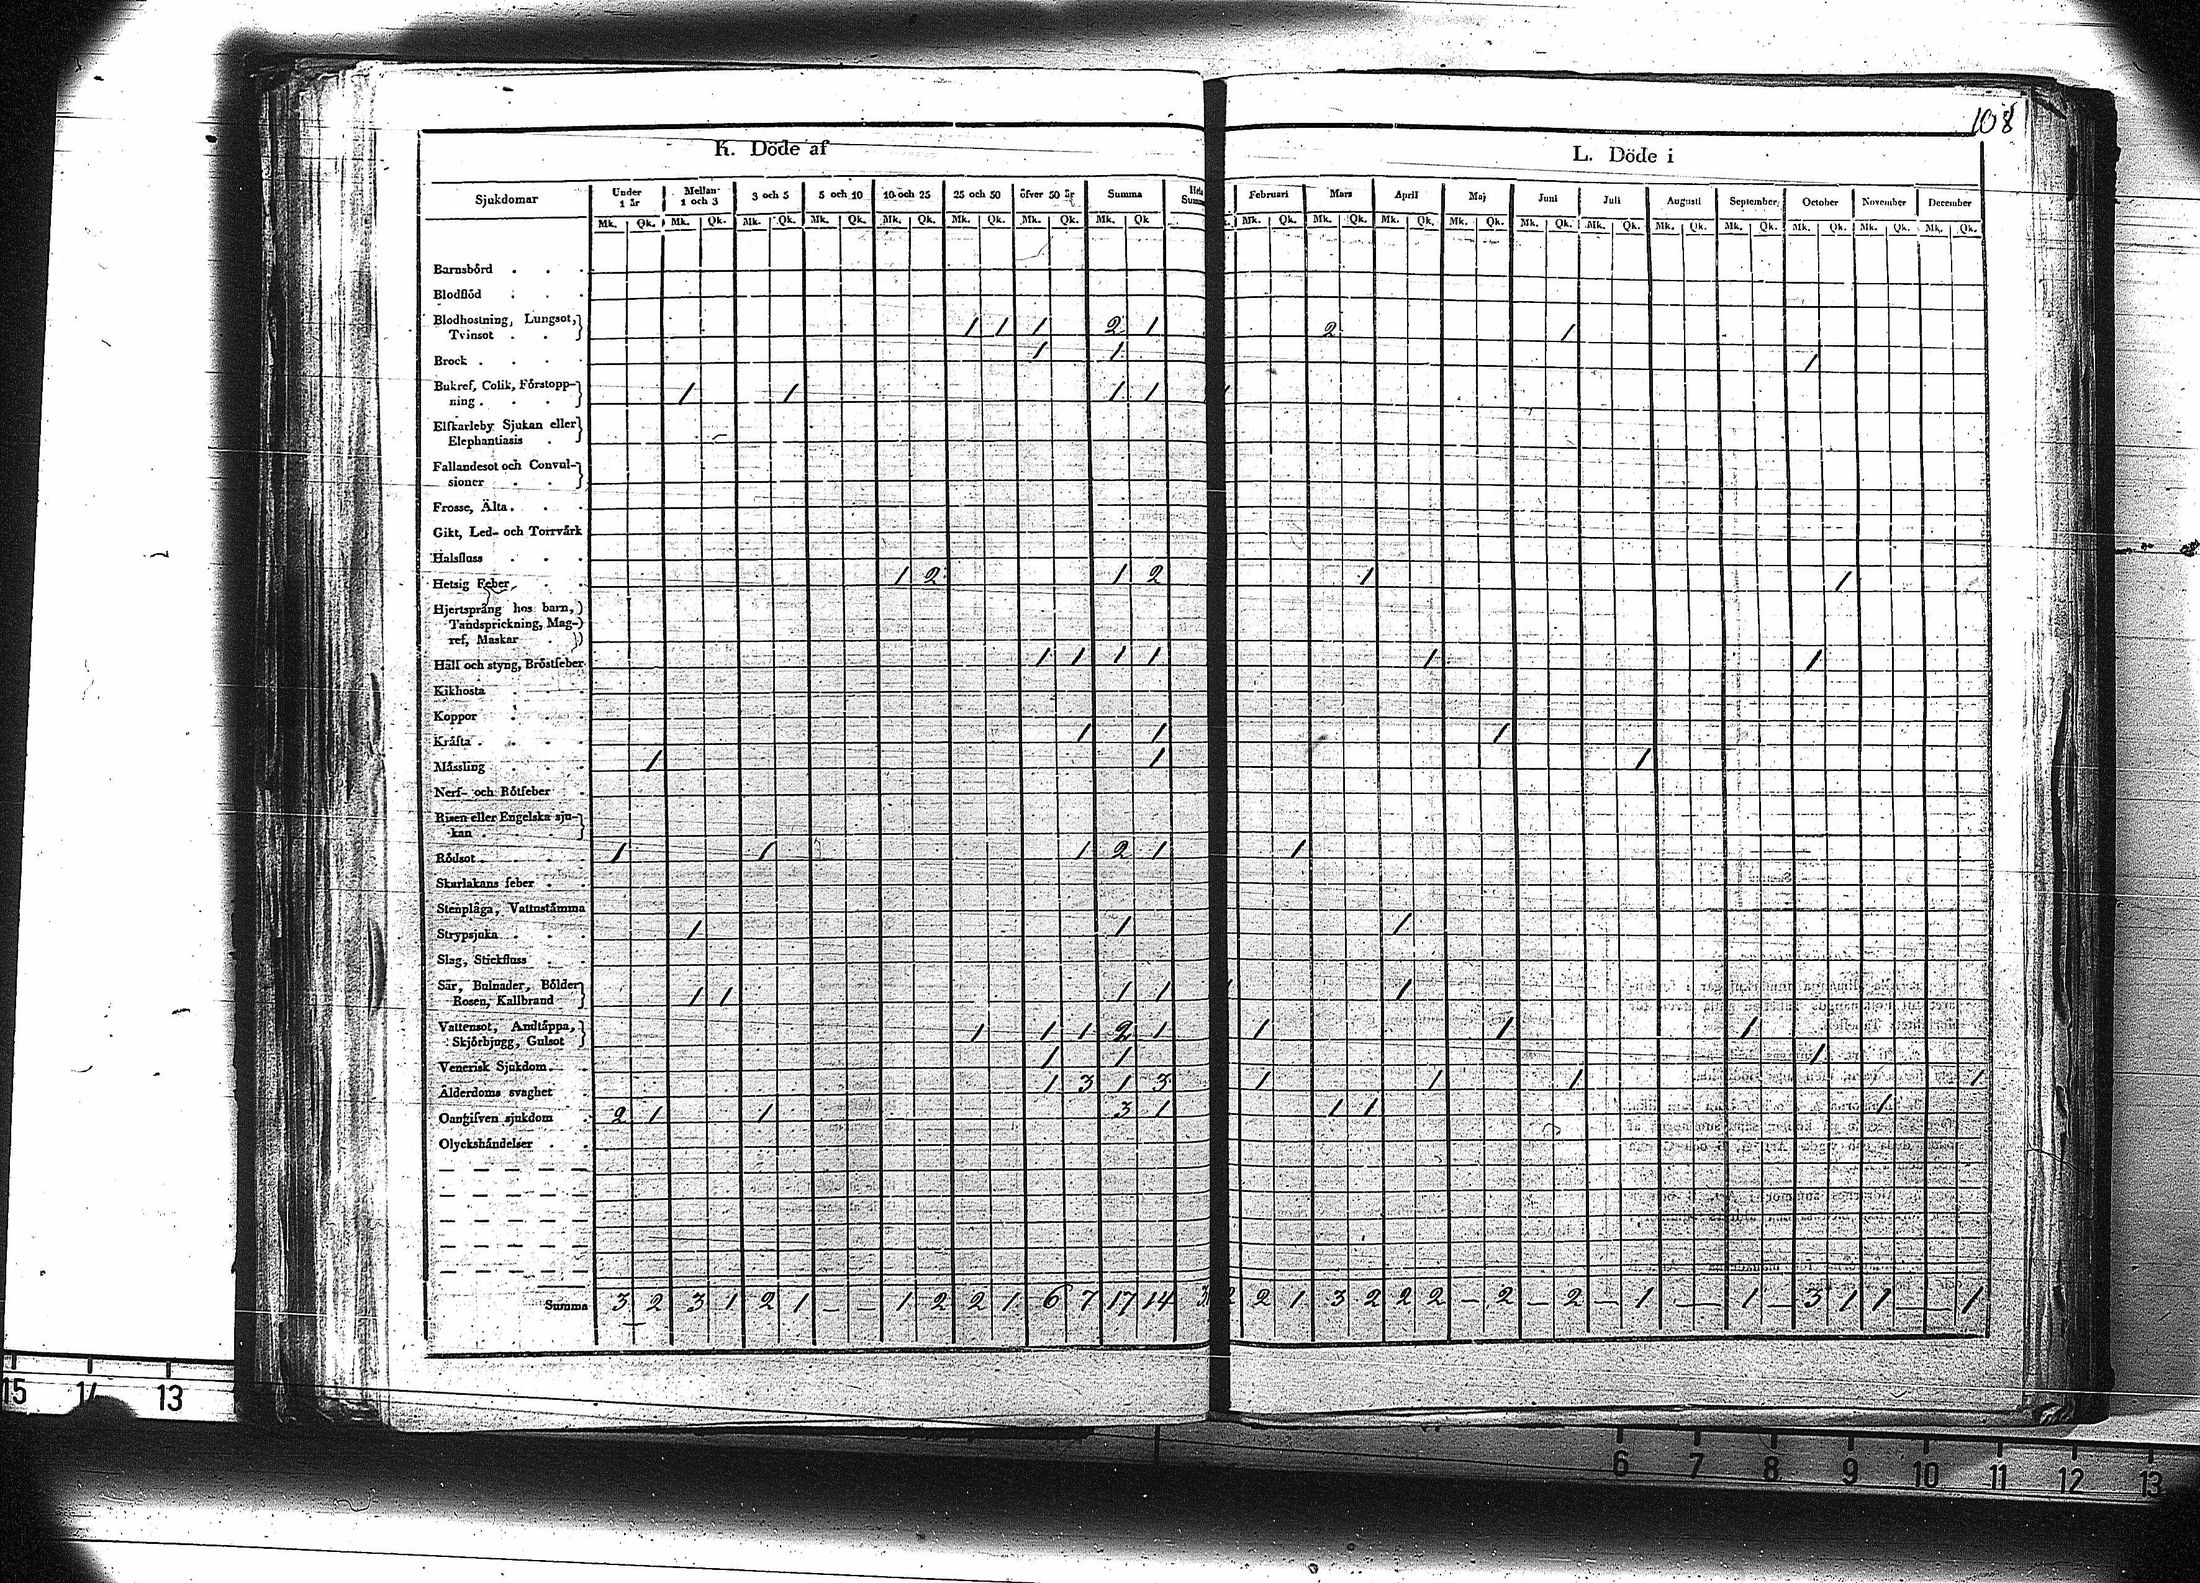 108
K. Döde af
Sjukdomar Under 1 år Mellan 1 och 3 3 och 5 5 och 10 10 och 25 25 och 50 öfver 50 år Summa
Mk. Qk. Mk. Qk. Mk. Qk. Mk. Qk. Mk. Qk. Mk. Qk. Mk. Qk. Mk. Qk
Barnsbörd . . .
Blodflöd . . .
Blodhostning, Lungsot,
Tvinsot . . 1 1 1 2 1
Brock . . . . 1 1
Bukref, Colik, Förstopp-
ning . . . 1 1 1 1
Elfkarleby Sjukan eller
Elephantiasis .
Fallandesot och Convul-
sioner . .
Frosse, Älta . . .
Gikt, Led- och Torrvärk
Halsfluss . . .
Hetsig Feber . . 1 2 1 2
Hjertsprång hos barn,
Tandsprickning, Mag-
ref, Maskar .
Håll och styng, Bröstfeber 1 1 1 1
Kikhosta . . .
Koppor . . .
Kräfta . . . . 1 1
Mässling . . . 1 1
Nerf- och Rötfeber .
Risen eller Engelska sju-
kan .
Rödsot . . . . 1 1 1 2 1
Skarlakans feber . .
Stenplåga, Vattustämma
Strypsjuka . . . 1 1
Slag, Stickfluss . .
Sår, Bulnader, Bölder
Rosen, Kallbrand 1 1 1 1
Vattensot, Andtäppa,
Skjörbjugg, Gulsot 1 1 1 2 1
Venerisk Sjukdom . . 1 1
Ålderdoms svaghet . 1 3 1 3
Oangifven sjukdom . 2 1 1 3 1
Olyckshändelser . .
Summa 3 2 3 1 2 1 – – 1 2 2 1 6 7 17 14
L. Döde i
Februari Mars April Maj Juni Juli Augusti September October November December
Mk. Qk. Mk. Qk. Mk. Qk. Mk. Qk. Mk. Qk. Mk. Qk. Mk. Qk. Mk. Qk. Mk. Qk. Mk. Qk. Mk. Qk.
2 1
1
1
1 1
1 1
1
1
1
1
1
1 1 1
1
1 1 1 1
1 1 1
2 1 3 2 2 2 – 2 – 2 – 1 — 1 – 3 1 1 — — 1
15 14 13
6 7 8 9 10 11 12 13